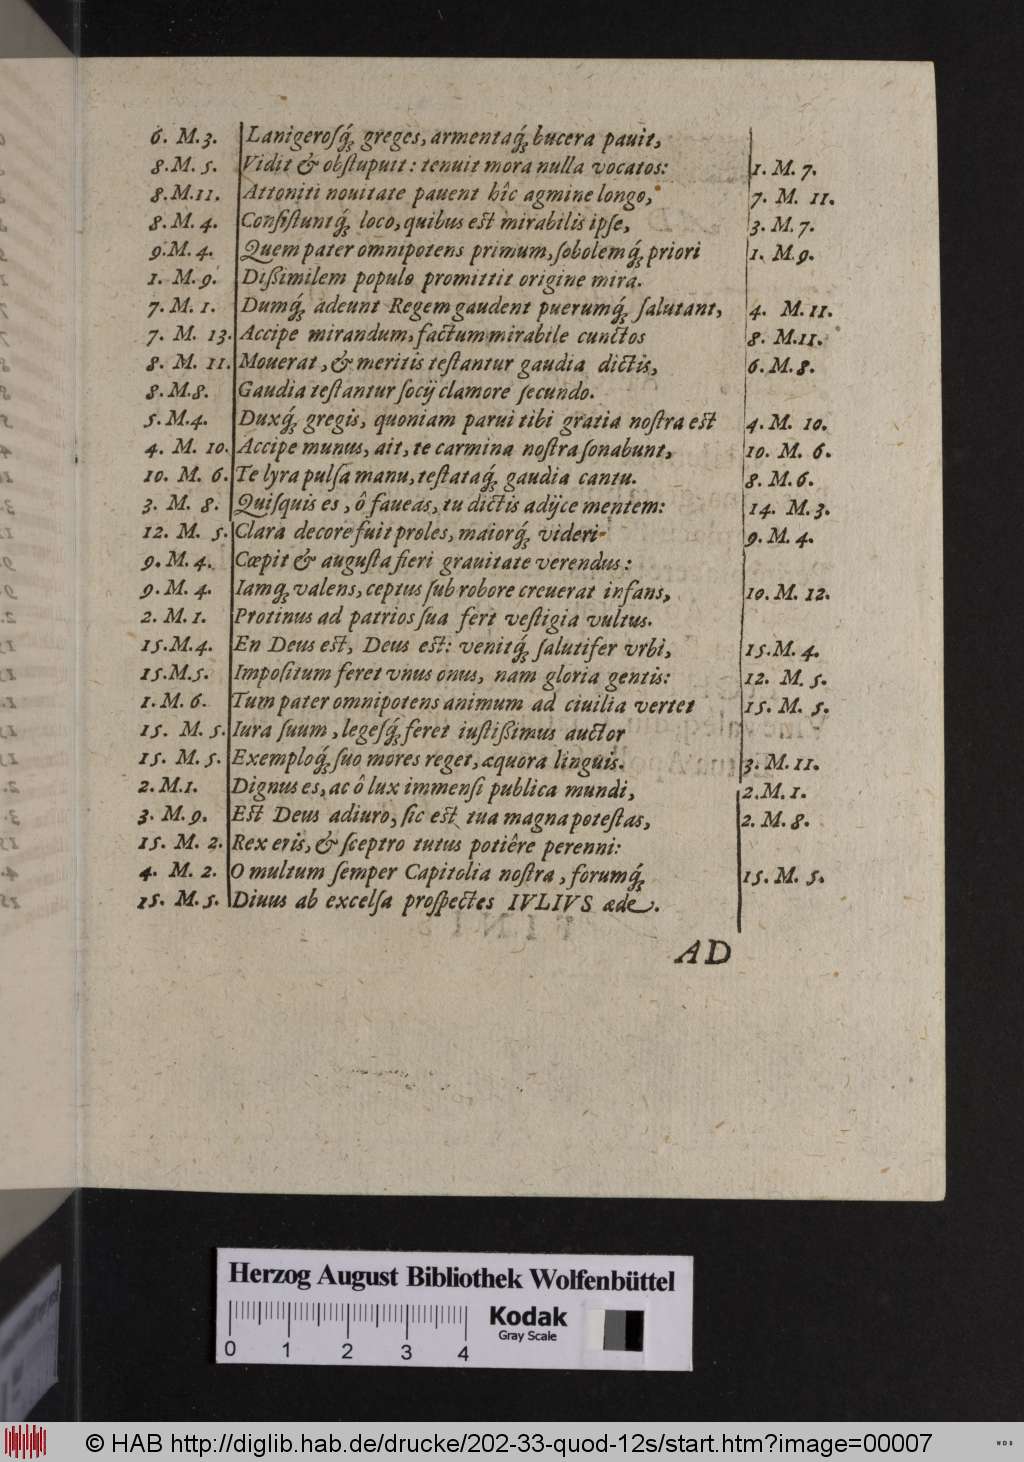 6. M. 3. Lanigerosq́; greges, armentaq́; bucera pauit,
8. M. 5. Vidit & obstupuit: tenuit mora nulla vocatos: 1. M. 7.
8. M. 11. Attoniti nouitate pauent hîc agmine longo, 7. M. 11.
8. M. 4. Consistuntq́; loco, quibus est mirabilis ipse, 3. M. 7.
9. M. 4. Quem pater omnipotens primum, sobolemq́; priori 1. M. 9.
1. M. 9. Dißimilem populo promittit origine mira.
7. M. 1. Dumq́; adeunt Regem gaudent puerumq́; salutant, 4. M. 11.
7. M. 13. Accipe mirandum, factum mirabile cunctos 8. M. 11.
8. M. 11. Mouerat, & meritis testantur gaudia dictis, 6. M. 8.
8. M. 8. Gaudia testantur socij clamore secundo.
5. M. 4. Duxq́; gregis, quoniam parui tibi gratia nostra est 4. M. 10.
4. M. 10. Accipe munus, ait, te carmina nostra sonabunt, 10. M. 6.
10. M. 6. Te lyra pulsa manu, testataq́; gaudia cantu. 8. M. 6.
3. M. 8. Quisquis es, ô faueas, tu dictis adijce mentem: 14. M. 3.
12. M. 5. Clara decore fuit proles, maiorq́; videri 9. M. 4.
9. M. 4. Cœpit & augusta fieri grauitate verendus:
9. M. 4. Iamq; valens, ceptus sub robore creuerat infans, 10. M. 12.
2. M. 1. Protinus ad patrios sua fert vestigia vultus.
15. M. 4. En Deus est, Deus est: venitq́; salutifer vrbi, 15. M. 4.
15. M. 5. Impositum feret vnus onus, nam gloria gentis: 12. M. 5.
1. M. 6. Tum pater omnipotens animum ad ciuilia vertet 15. M. 5.
15. M. 5. Iura suum, legesq́; feret iustißimus auctor
15. M. 5. Exemploq́; suo mores reget, æquora linguis. 3. M. 11.
2. M. 1. Dignus es, ac ô lux immensi publica mundi, 2. M. 1.
3. M. 9. Est Deus adiuro, sic est tua magna potestas, 2. M. 8.
15. M. 2. Rex eris, & sceptro tutus potiêre perenni:
4. M. 2. O multum semper Capitolia nostra, forumq́; 15. M. 5.
15. M. 5. Diuus ab excelsa prospectes IVLIVS æde.
AD
Herzog August Bibliothek Wolfenbüttel
Kodak
Gray Scale
0 1 2 3 4
© HAB http://diglib.hab.de/drucke/202-33-quod-12s/start.htm?image=00007